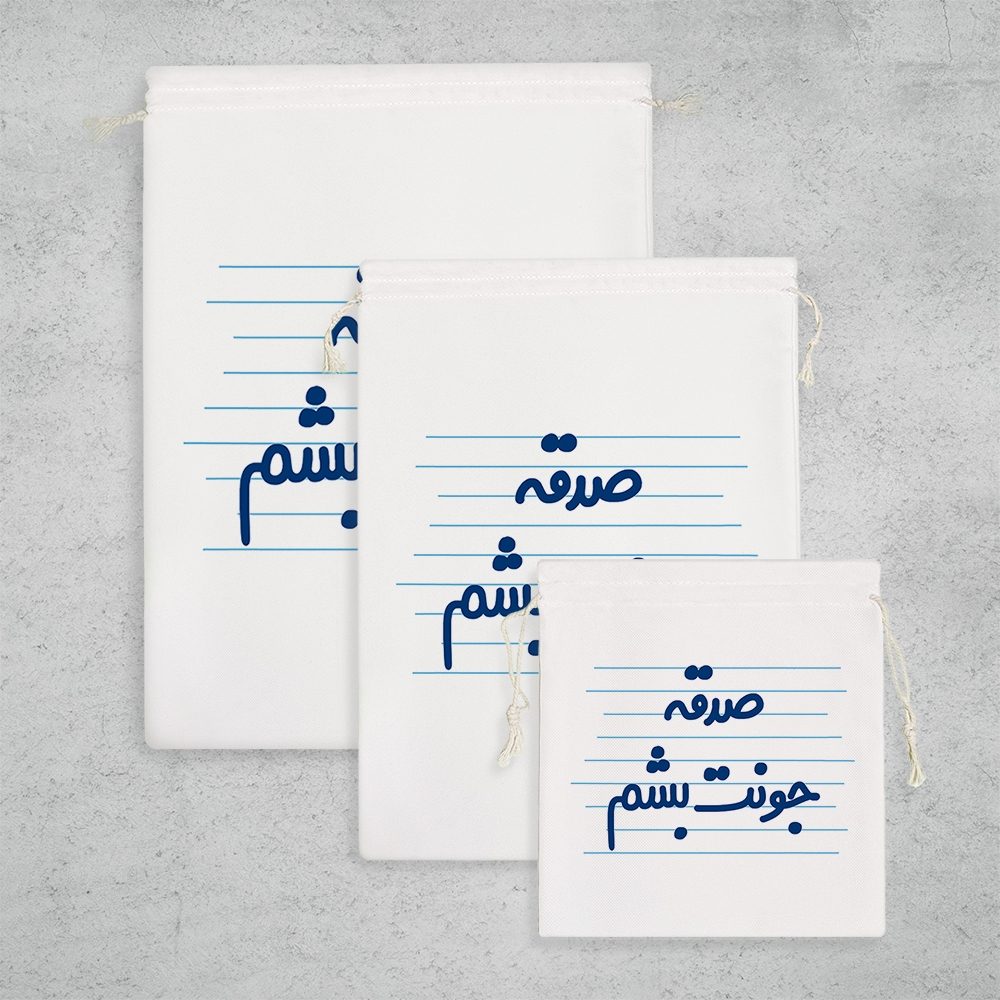 بشم
صدقه
بشم
صدقه
جونت بشم